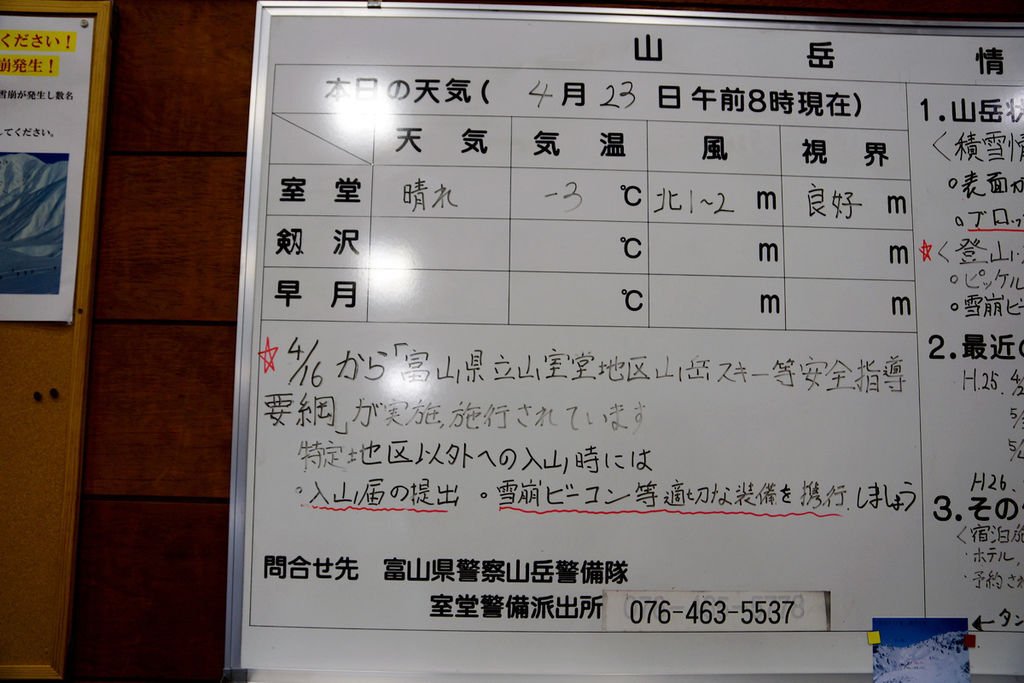 ください！
崩発生！
雪崩が発生し数名
してください。
山岳情
本日の天気( 4月23日午前8時現在)
天気 気温 風 視界
室堂 晴れ -3℃ 北1~2m 良好m
剱沢 ℃ m m
早月 ℃ m m
☆4/16から「富山県立山室堂地区山岳スキー等安全指導
要綱」が実施,施行されています
特定地区以外への入山時には
。入山届の提出 。雪崩ビーコン等適切な装備を携行しましょう
問合せ先 富山県警察山岳警備隊
室堂警備派出所 076-463-5537
1.山岳状
<積雪情
。表面が
。ブロッ
☆<登山・
。ピッケル
。雪崩ビー
2.最近の
H.25.
H26.
3.その
<宿泊施
・ホテル,
・予約され
←タン